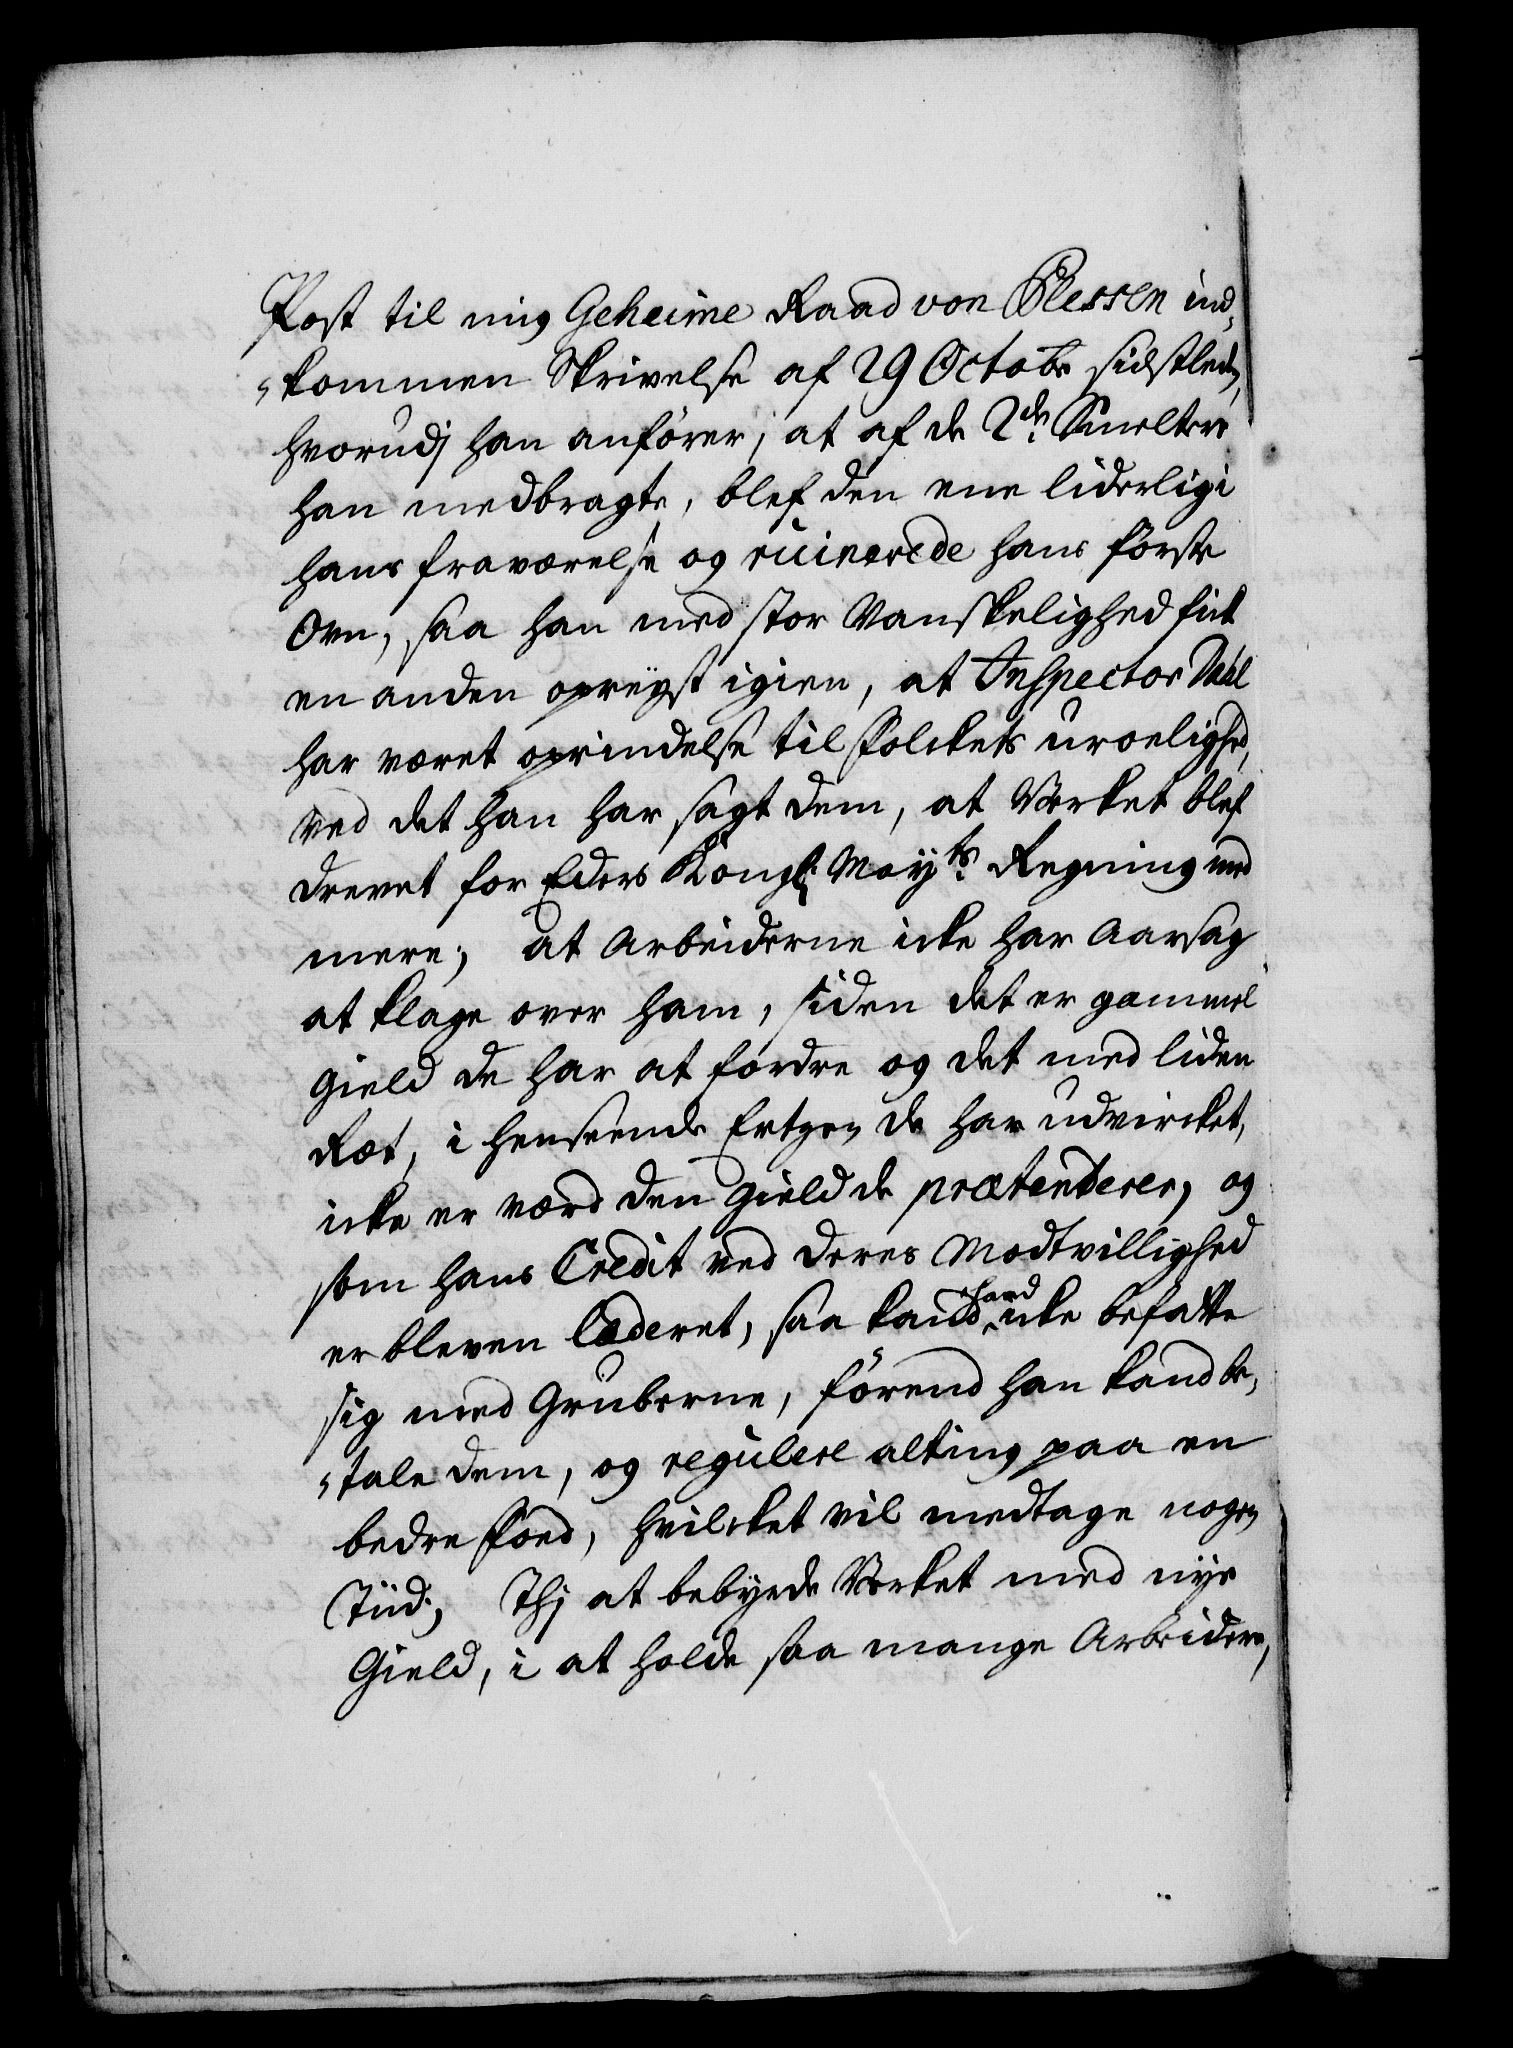 Post til mig Geheime Raad von Plessen ind,
"kommen Skrivelse af 29 Octobr sidstleden,
hvorudj han anfører, at af de 2de Smeltere
han medbragte, blef den ene liderlig i
hans fraværelse og ruinerede hans første
Ovn, saa han med stor Vanskelighed fick
en anden opreyst igien, at Inspector Dahl
har været oprindelse til Folckets uroelighed,
ved det han har sagt dem, at Verket blef
drevet for Eders Kongl: Mayts: Regning med
mere; at Arbeiderne icke har Aarsag
at klage over ham, siden det er gammel
Gield de har at fordre og det med liden
Ræt, i henseende Ertzen de har udvircket,
icke er værd den Gield de prætenderer, og
som hans Credit ved deres Modtvillighed
er bleven læderet, saa kand hand icke befatte
sig med Gruberne, førend han kand be,
"tale dem, og regulere alting paa en
bedre Foed, hvilcket vil medtage nogen
Tiid; Thj at bebyrde Verket med nye
Gield, i at holde saa mange Arbeidere,